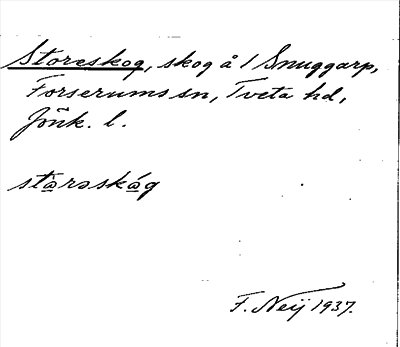 Storeskog, skog å 1 Snuggarp,
Forserums sn, Tveta hd,
Jönk. l.
stàrəskág
F. Neij 1937.